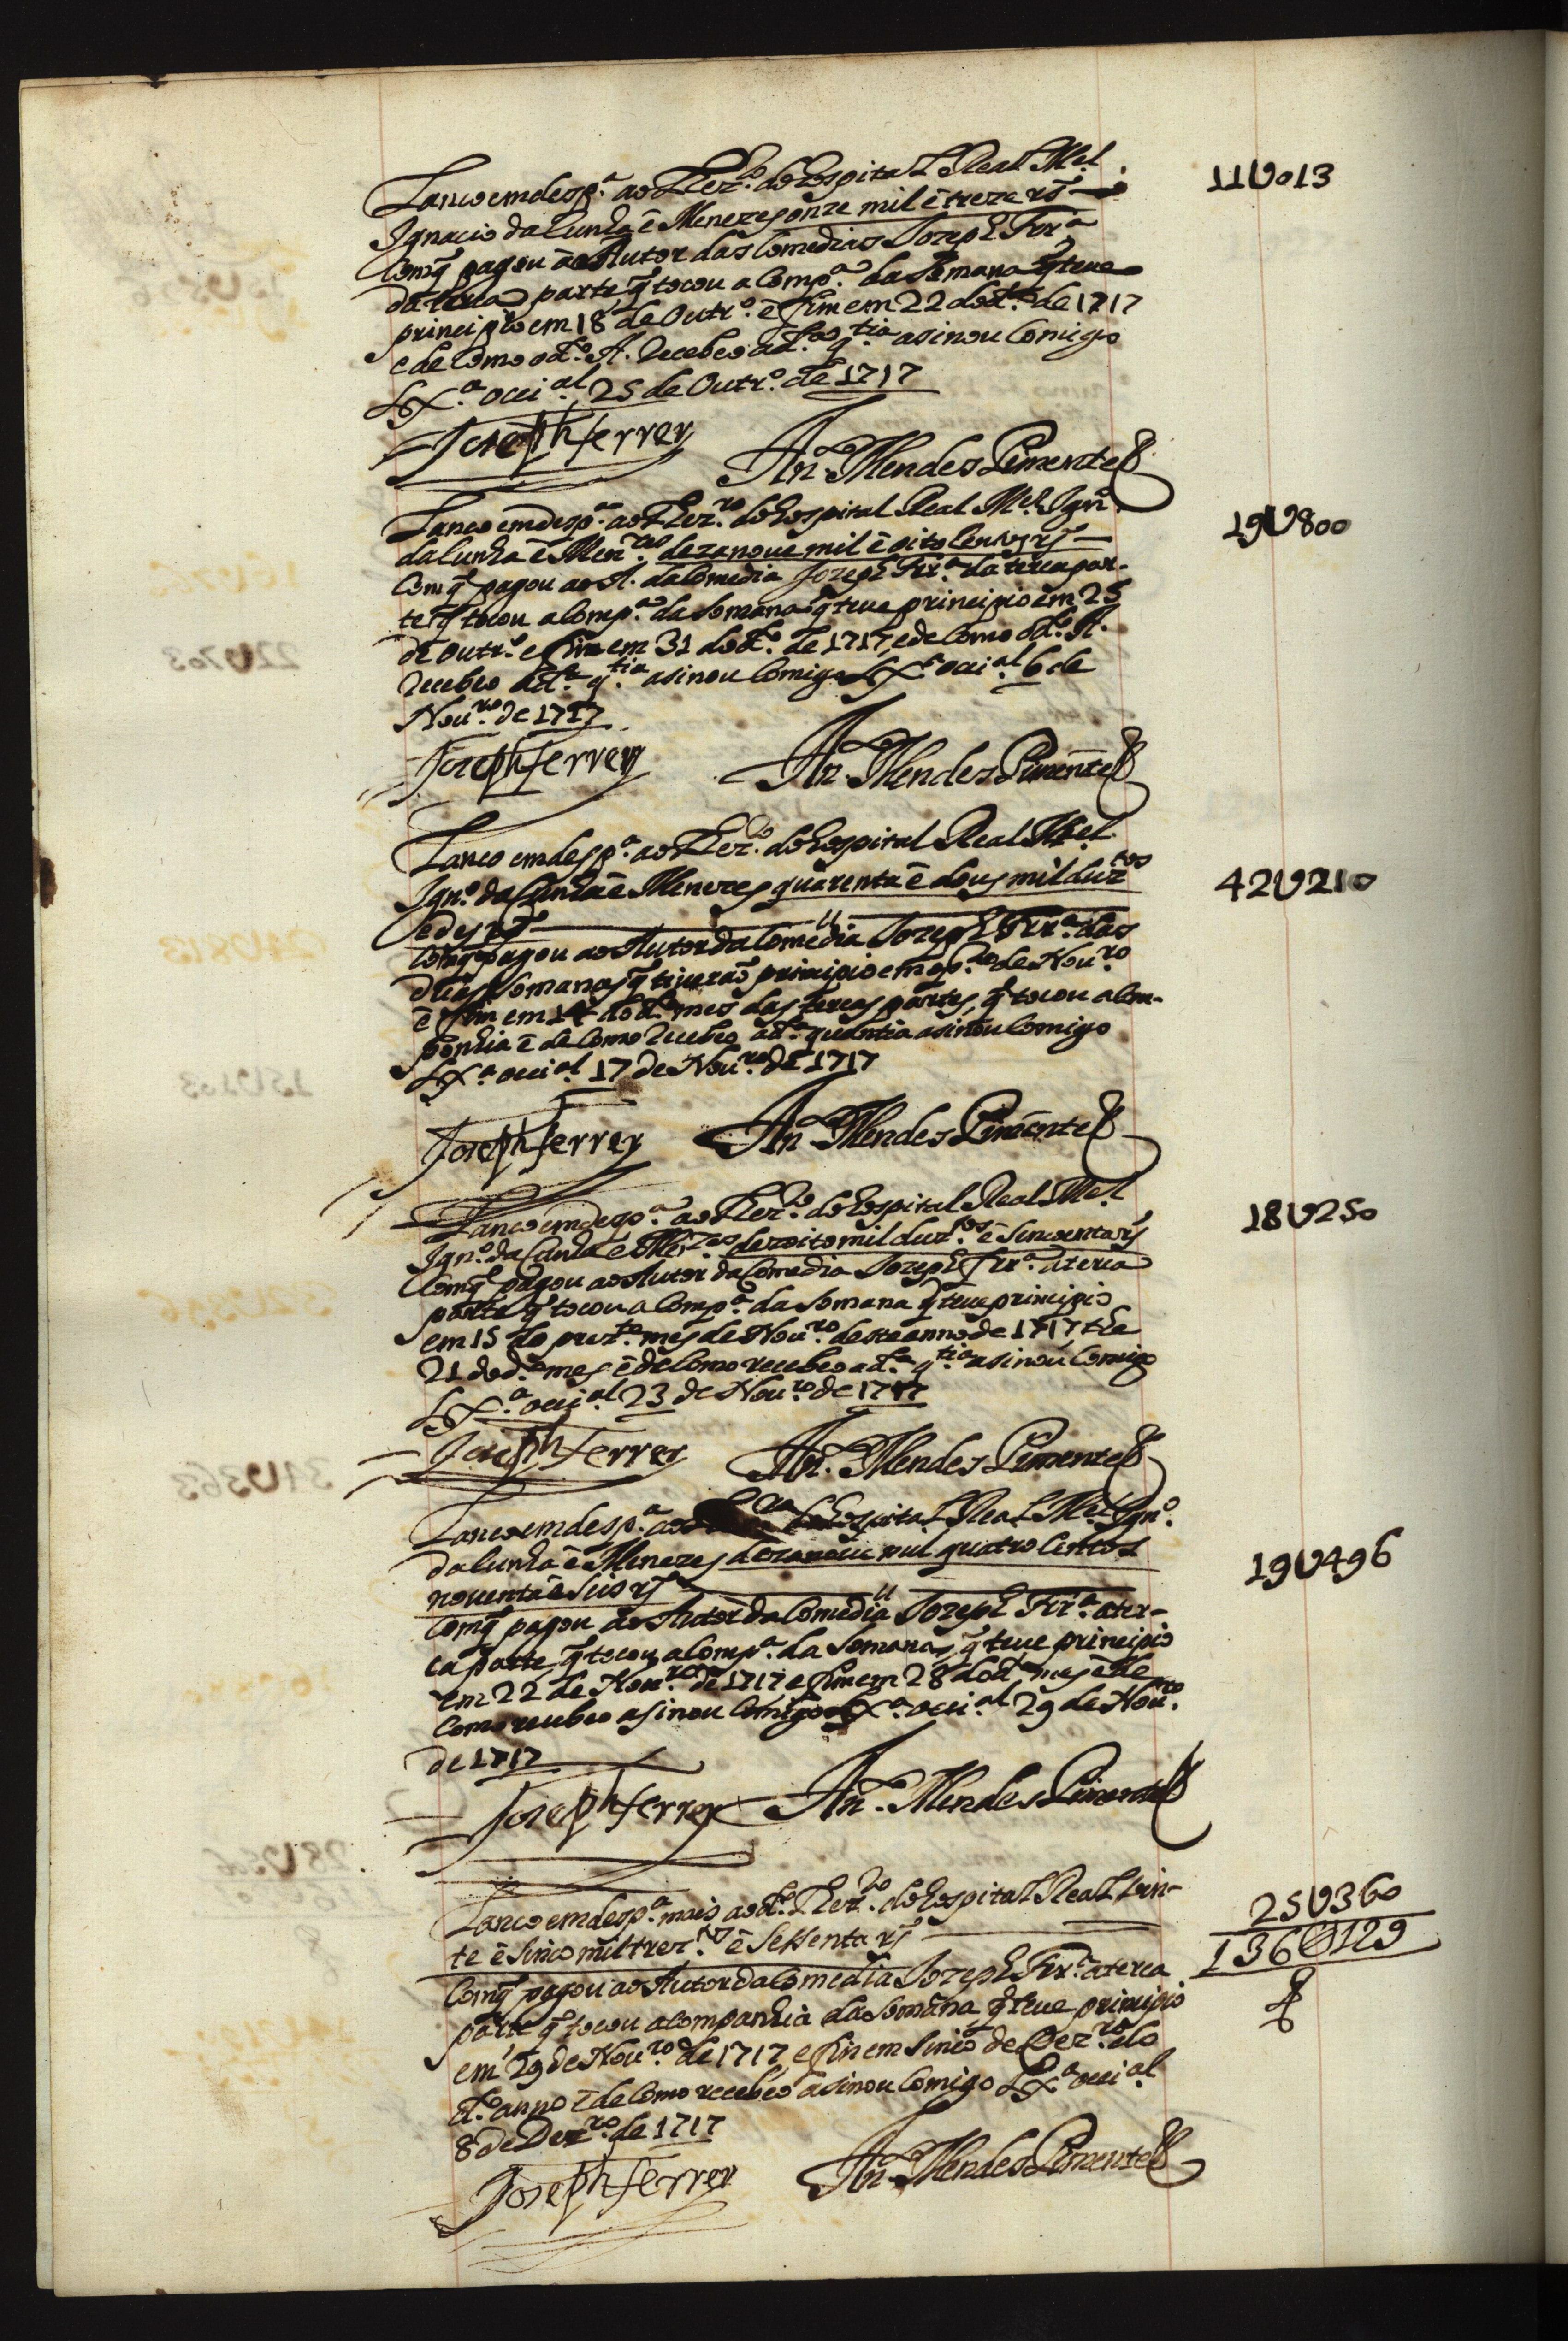 Lanco em desp.ª ao Thez.ro do Hospital Real M.el
11U013
Ignacio da Cunha ê Menezes onze mil ê treze rs
Com q̃ pagou ao Autor das Comedias Jozeph Frr.ª
da terca parte, q̃ tocou a Comp.ª da Somana q̃ teue
principio em 18 de Outr.º ê fim em 22 do d.º de 1717
e de Como o d.º A. Recebeo a d.ª q.tia asinou Comigo
Lx.ª occi.al 25 de Outr.º de 1717
Joseph ferrer An.º Mendes Pimentel
Lanco em desp.ª ao Thez.ro do Hospital Real M.el Ign.º
19U800
da Cunha ê Men.zes dezanoue mil ê oito Centos rs
Com q̃ pagou ao A. da Comedia Jozeph Frr.ª da terca par-
te q̃ tocou a Comp.ª da Somana q̃ teue principio em 25
de Outr.º e fim em 31 do d.º de 1717, e de Como o d.º A.
Recebeo a d.ª q.tia asinou Comigo Lx.ª occi.al 6 de
Nou.ro de 1717
Joseph ferrer An.º Mendes Pimentel
Lanco em desp.ª ao Thez.ro do Hospital Real M.el
Ign.º da Cunha ê Menezes quarenta ê dous mil duz.tos
42U210
e des rs
Com q̃ pagou ao Autor da Comedia Jozeph Frr.ª das
duas Somanas q̃ tiuerão principio em pr.º de Nou.ro
ê fim em 14 do d.º mes das tercas partes, q̃ tocou a Com-
panhia ê de Como Recebeo a d.ª quantia asinou Comigo
Lx.ª occi.al 17 de Nou.ro de 1717
Joseph ferrer An.º Mendes Pimentel
Lanco em desp.ª ao Thez.ro do Hospital Real M.el
18U250
Ign.º da Cunha e M.zes dezoito mil duz.tos ê Sincoenta rs
Com q̃ pagou ao Autor da Comedia Jozeph Frr.ª a terca
parte q̃ tocou a Comp.ª da Somana q̃ teue principio
em 15 do prez.te mes de Nou.ro deste anno de 1717 the
21 do d.º mes ê de Como recebeo a d.ª q.tia asinou Comigo
Lx.ª occi.al 23 de Nou.ro de 1717
Joseph ferrer An.º Mendes Pimentel
Lanco em desp.ª ao Hospital Real M.el Ign.º
da Cunha ê Menezes dezanoue mil quatro Centos
19U496
nouenta ê Seis rs
Com q̃ pagou ao Autor da Comedia Jozeph Frr.ª a ter-
ca parte q̃ tocou a Comp.ª da Somana, q̃ teue principio
em 22 de Nou.ro de 1717 e fim em 28 do d.º mes ê de
Como recebeo asinou Comigo Lx.ª occi.al 29 de Nou.ro
de 1717
Joseph ferrer An.º Mendes Pimentel
Lanco em desp.ª mais ao d.º Thez.ro do Hospital Real Vin-
25U360
te ê Sinco mil trez.tos ê Sessenta rs
136U129
Com q̃ pagou ao Autor da Comedia Jozeph Frr.ª a terca
parte q̃ tocou a Companhia da Somana, q̃ teue principio
em 29 de Nou.ro de 1717, e fim em Sinco de Dez.ro do
d.º anno ê de Como recebeo asinou Comigo Lx.ª occi.al
8 de Dez.ro de 1717
Joseph ferrer An.º Mendes Pimentel